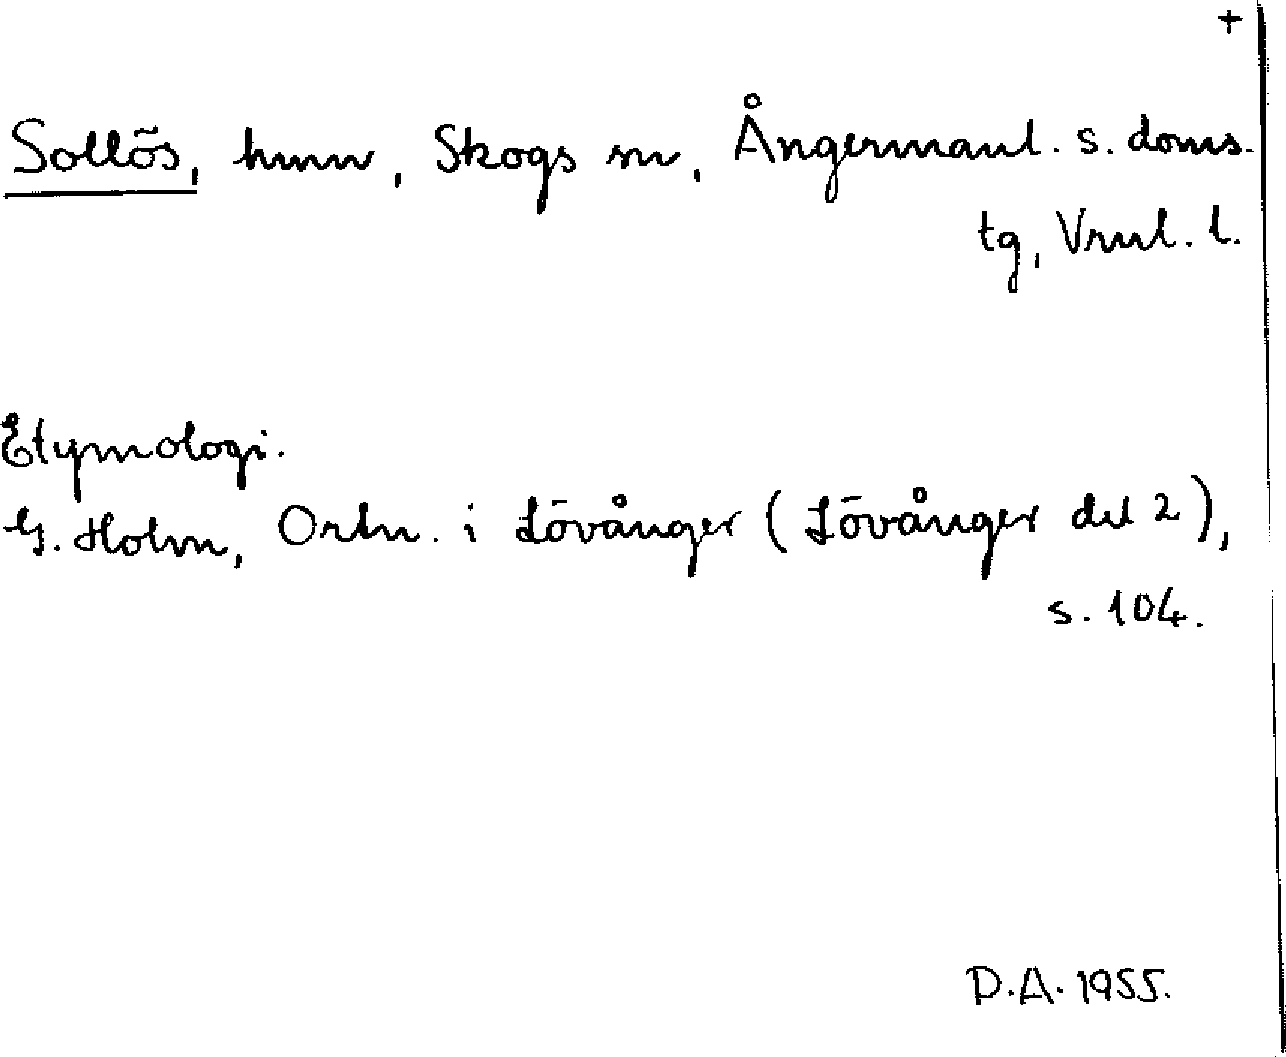 +
Sollös, hmn, Skogs sn, Ångermanl. s. doms.
tg, Vrnl. l.
Etymologi.
G. Holm, Ortn. i Lövånger (Lövånger del 2),
s. 104.
D.A. 1955.